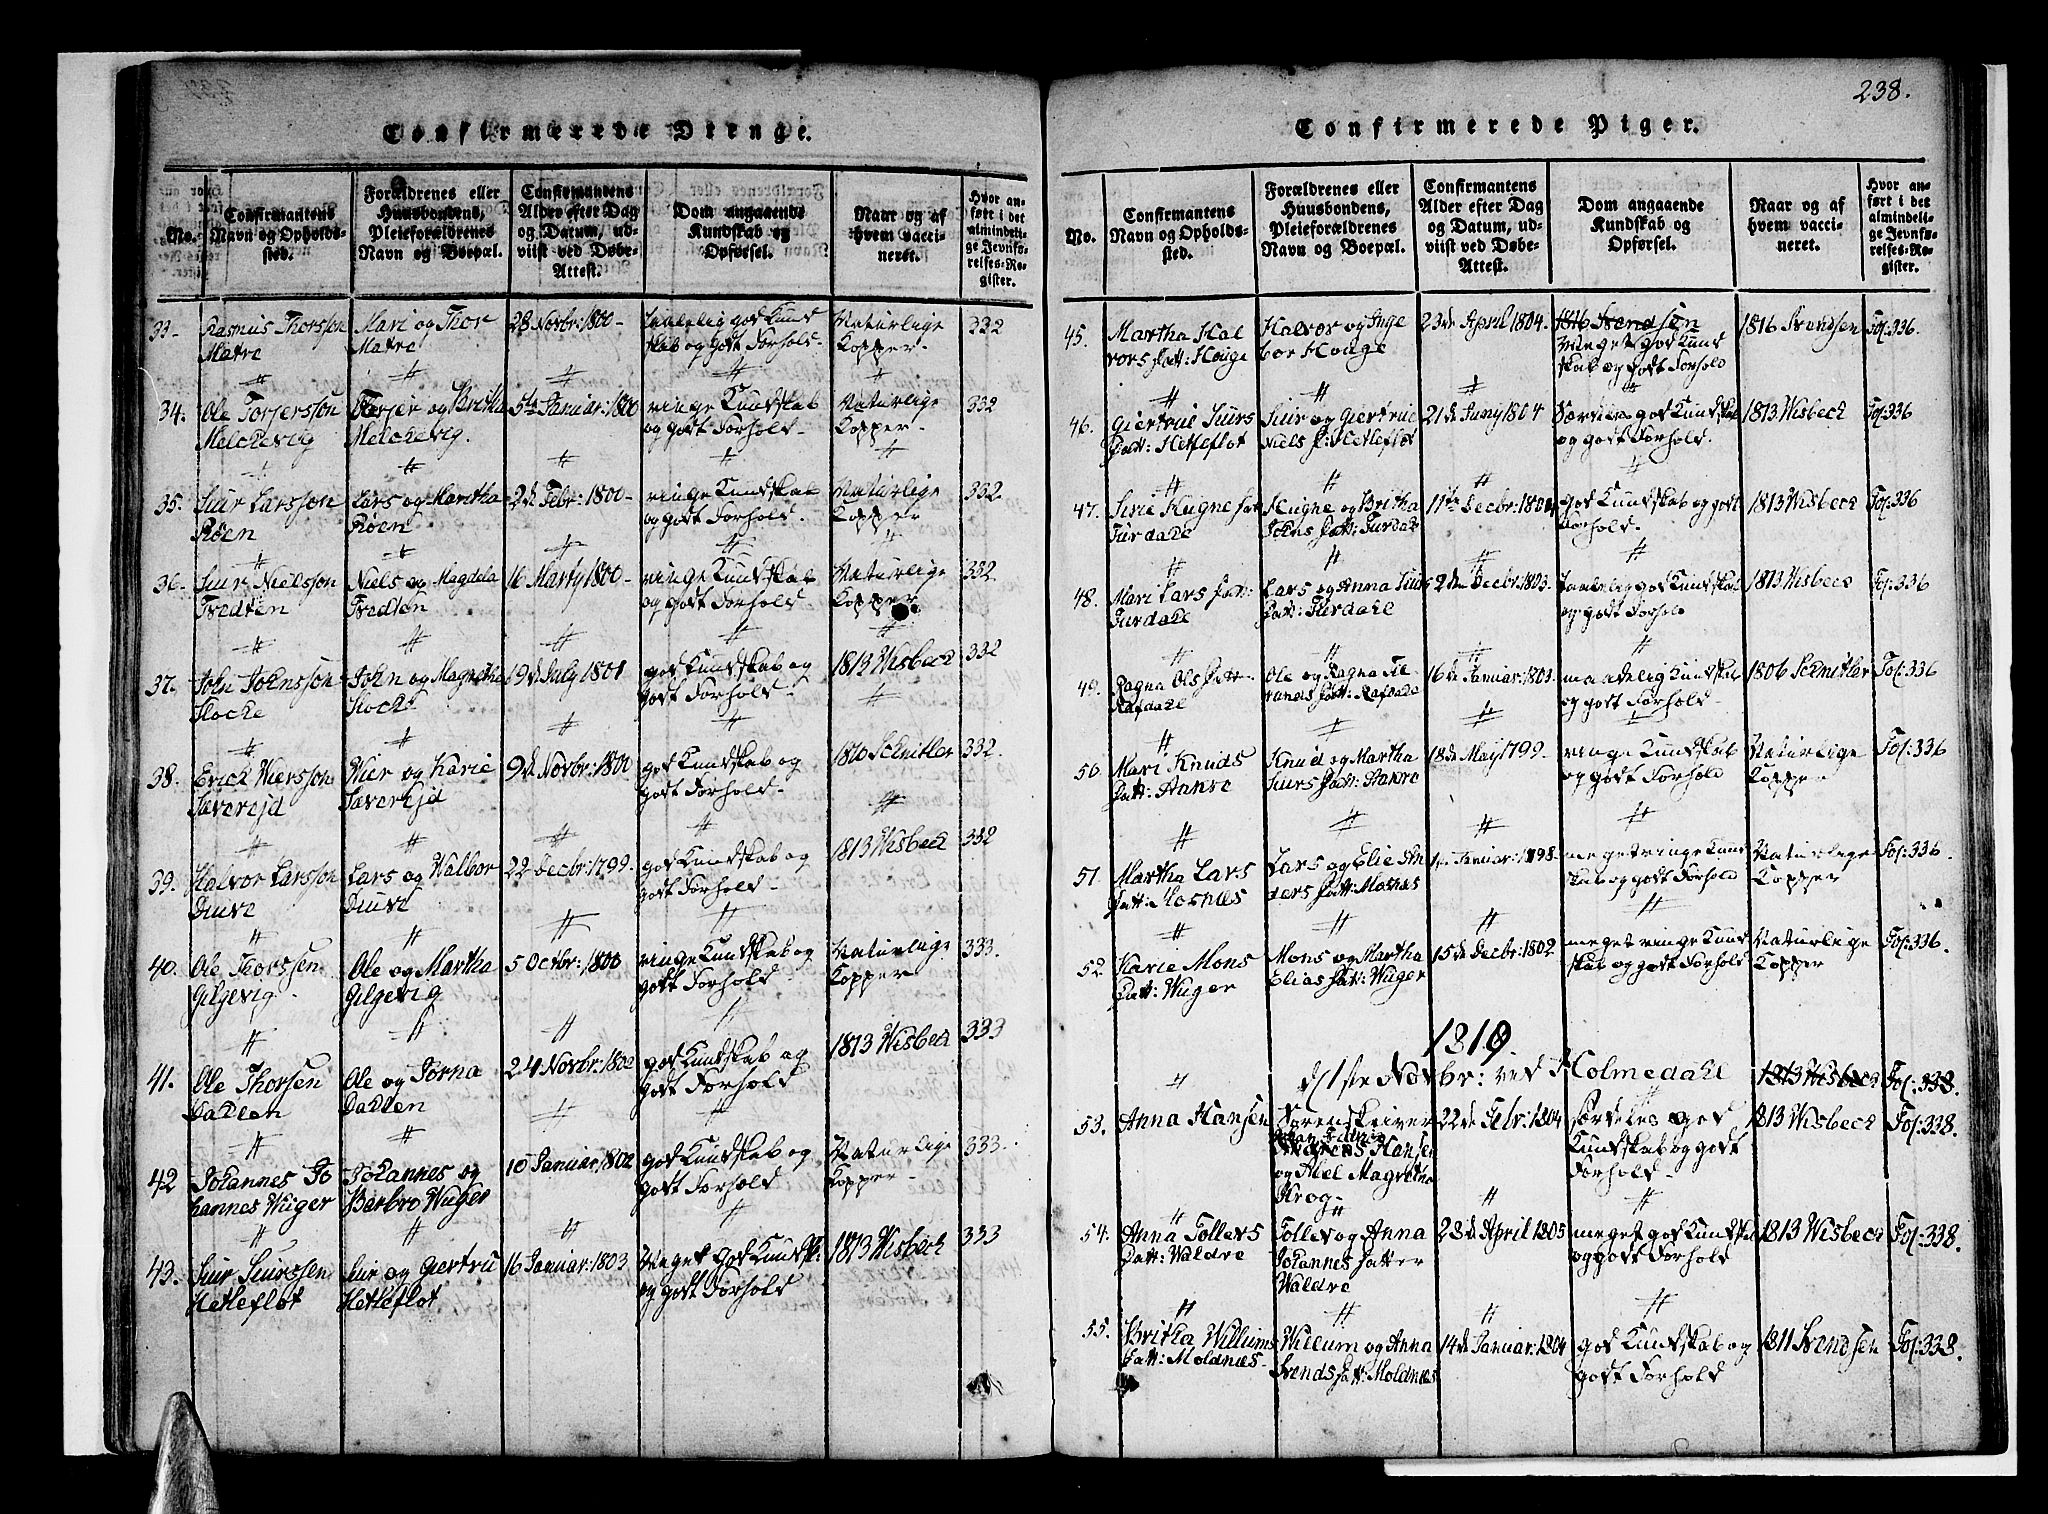 Confirmerede Drenge.
No.
Confirmantens
Navn og Opholds-
sted.
Forældrenes eller
Huusbondens,
Pleieforældrenes
Navn og Boepæl.
Confirmantens
Alder efter Dag
og Datum, ud-
viist ved Døbe-
Attest.
Dom angaaende
Kundskab og
Opførsel.
Naar og af
hvem vacci-
neret.
Hvor an-
ført i det
almindeli-
ge Jevnfø-
relses-Re-
gister.
33. Rasmus Thorsson
Matre
Mari og Thor
Matre
28 Novbr: 1800
god Kund
skab og godt Forhold.
Naturlige
Kopper
332
34. Ole Torjersson
Melchevig
Torjer og Britha
Melchevig.
5te Januar: 1800
ringe Kundskab
og godt Forhold
Naturlige
Kopper
332
35. Siur Larsson
Røen
Lars og Maritha
Røen
2de Febr: 1800
ringe Kundskab
og godt Forhold.
Naturlige
Kopper
332
36. Siur Nielsson
Tredten
Niels og Magdela
Tredten
16 Marty 1800
ringe Kundskab
og godt Forhold.
Naturlige
Kopper
332
37. John Johnsson
Stocke
John og Magretha
Stocke
19de July 1801
god Kundskab og
godt Forhold
1813 Wisbech
332
38. Erich Wiersson
Saverejd
Wier og Karie
Saverejd
9de Novbr: 1800
god Kundskab og
godt Forhold
1810 Schnitler
332.
39. Halvor Larsson
Duuve
Lars og Walbor
Duuve
22 Decbr: 1799.
god Kundskab og
godt Forhold
1813 Wisbech
332
40. Ole Thorssen
Gilgevig
Ole og Martha
Gilgevig
5 Octbr: 1800
ringe Kundskab og
godt Forhold
Naturlige
Kopper
333.
41. Ole Thorsen
Dahlen
Ole og Jorna
Dahlen
24 Novbr: 1802
god Kundskab og
godt Forhold
1813 Wisbech
333
42 Johannes Jo
hannes Wuger
Johannes og
Berbro Wuger
10 Januar: 1802
god Kundskab og
godt Forhold
Naturlige
Kopper
333.
43. Siur Siurssen
Hetleflot
Siur og Giertru
Hetleflot
16 Januar: 1803
Meget god Kundsk:
og godt Forhold
1813 Wisbech
333
238.
Confirmerede Piger.
No.
Confirmantens
Navn og Opholds-
sted.
Forældrenes eller
Huusbondens,
Pleieforældrenes
Navn og Boepæl.
Confirmantens
Alder efter Dag
og Datum, ud-
viist ved Døbe-
Attest.
Dom angaaende
Kundskab og
Opførsel.
Naar og af
hvem vacci-
neret.
Hvor an-
ført i det
almindeli-
ge Jevnfø-
relses-Re-
gister.
45. Martha Hal
vors Datt: Houge
Halvor og Inge
bor Houge
23de April 1804.
1816 Svendsen
Meget god Kund
skab og godt Forhold
1816 Svendsen
Fol: 336.
46. Giertrue Siurs
Datt: Hetleflot
Siur og Giertrue
Niels D: Hetleflot
21de Juny 1804
Særdeles god Kundskab
og godt Forhold.
1813 Wisbech
Fol: 336
47. Sirie Hugne Dat
Turdahl
Hugne og Britha
Johns Datt: Turdahl
11te Decbr: 1801
god Kundskab og godt
Forhold.
1813 Wisbech
Fol: 336
48. Mari Lars Dat:
Turdahl
Lars og Anna Siurs
Datt: Turdahl
2den Decbr: 1803.
god Kundskab
og godt Forhold
1813 Wisbech
Fol: 336
49. Ragna Ols Datt
Rafdahl
Ole og Ragna
Datt: Rafdahl
16de Januar: 1801.
maadelig Kundskab
og godt Forhold
1806 Schnitler
Fol: 336
50. Mari Knuds
Datt: Stanse
Knud og Martha
Siurs Datt: Stanse
18de May 1799.
ringe Kundskab
og godt Forhold
Naturlige
Kopper
Fol: 336
51 Martha Lars
Datt: Mosnæs
Lars og Elie An
ders Datt: Mosnæs
Januar: 1798.
meget ringe Kund
skab og godt Forhold
Naturlige
Kopper
Fol: 336.
52. Karie Mons
Datt: Wuger
Mons og Martha
Elias Datt: Wuger
15de Decbr: 1802
meget ringe Kund
skab og godt Forhold
Naturlige
Kopper
Fol: 336.
1819
d/1ste Novbr: ved Holmedahl
1813 Wisbech
Fol: 338.
53. Anna Hansen
Sorenskriver
Hansen
og Abel Magretha
Krog
22de Febr: 1804
særdeles god
Kundskab og godt
Forhold
1813 Wisbech
Fol: 338.
54. Anna Tollevs
Datt: Waldre
Tollev og Anna
Johannes Datter
Waldre
28de April 1805
meget god Kundskab
og godt Forhold
1813 Wisbech
Fol: 338.
55. Britha Willums
Datt: Moldnes
Willum og Anna
Svends Datt: Moldnes
14de Januar: 1804
god Kundskab og
godt Forhold
1811 Svendsen
Fol: 338.